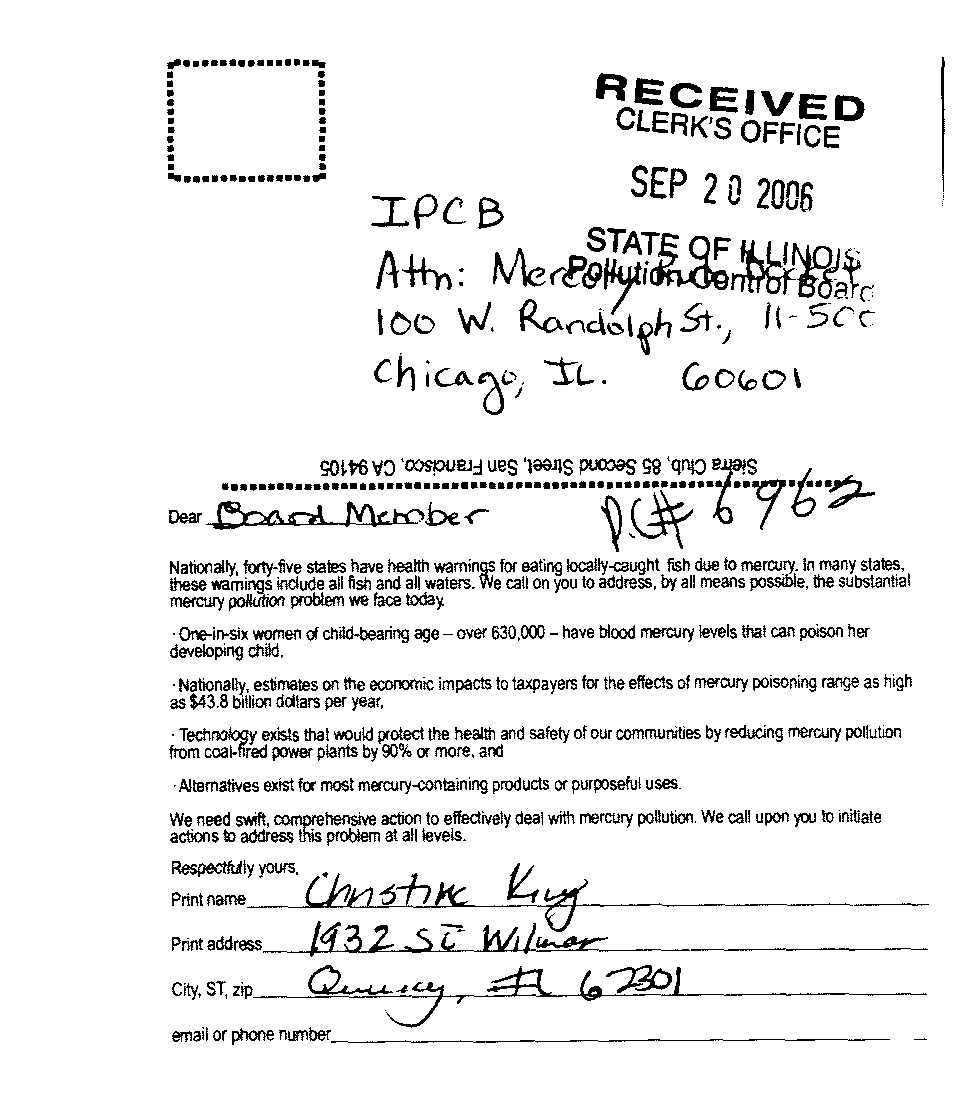 RECEIVED
CLERK'S OFFICE
SEP 20 2006
STATE OF ILLINOIS
Pollution Control Board
IPCB
Attn: Mercury Rule Docket
100 W. Randolph St., 11-500
Chicago, IL. 60601
Sierra Club, 85 Second Street, San Francisco, CA 94105
Dear Board Member
P.C# 6962
Nationally, forty-five states have health warnings for eating locally-caught fish due to mercury. In many states,
these warnings include all fish and all waters. We call on you to address, by all means possible, the substantial
mercury pollution problem we face today.
· One-in-six women of child-bearing age – over 630,000 – have blood mercury levels that can poison her
developing child,
· Nationally, estimates on the economic impacts to taxpayers for the effects of mercury poisoning range as high
as $43.8 billion dollars per year,
· Technology exists that would protect the health and safety of our communities by reducing mercury pollution
from coal-fired power plants by 90% or more, and
· Alternatives exist for most mercury-containing products or purposeful uses.
We need swift, comprehensive action to effectively deal with mercury pollution. We call upon you to initiate
actions to address this problem at all levels.
Respectfully yours,
Print name Christine King
Print address 1932 Wilmar
City, ST, zip Quincy, IL 62301
email or phone number